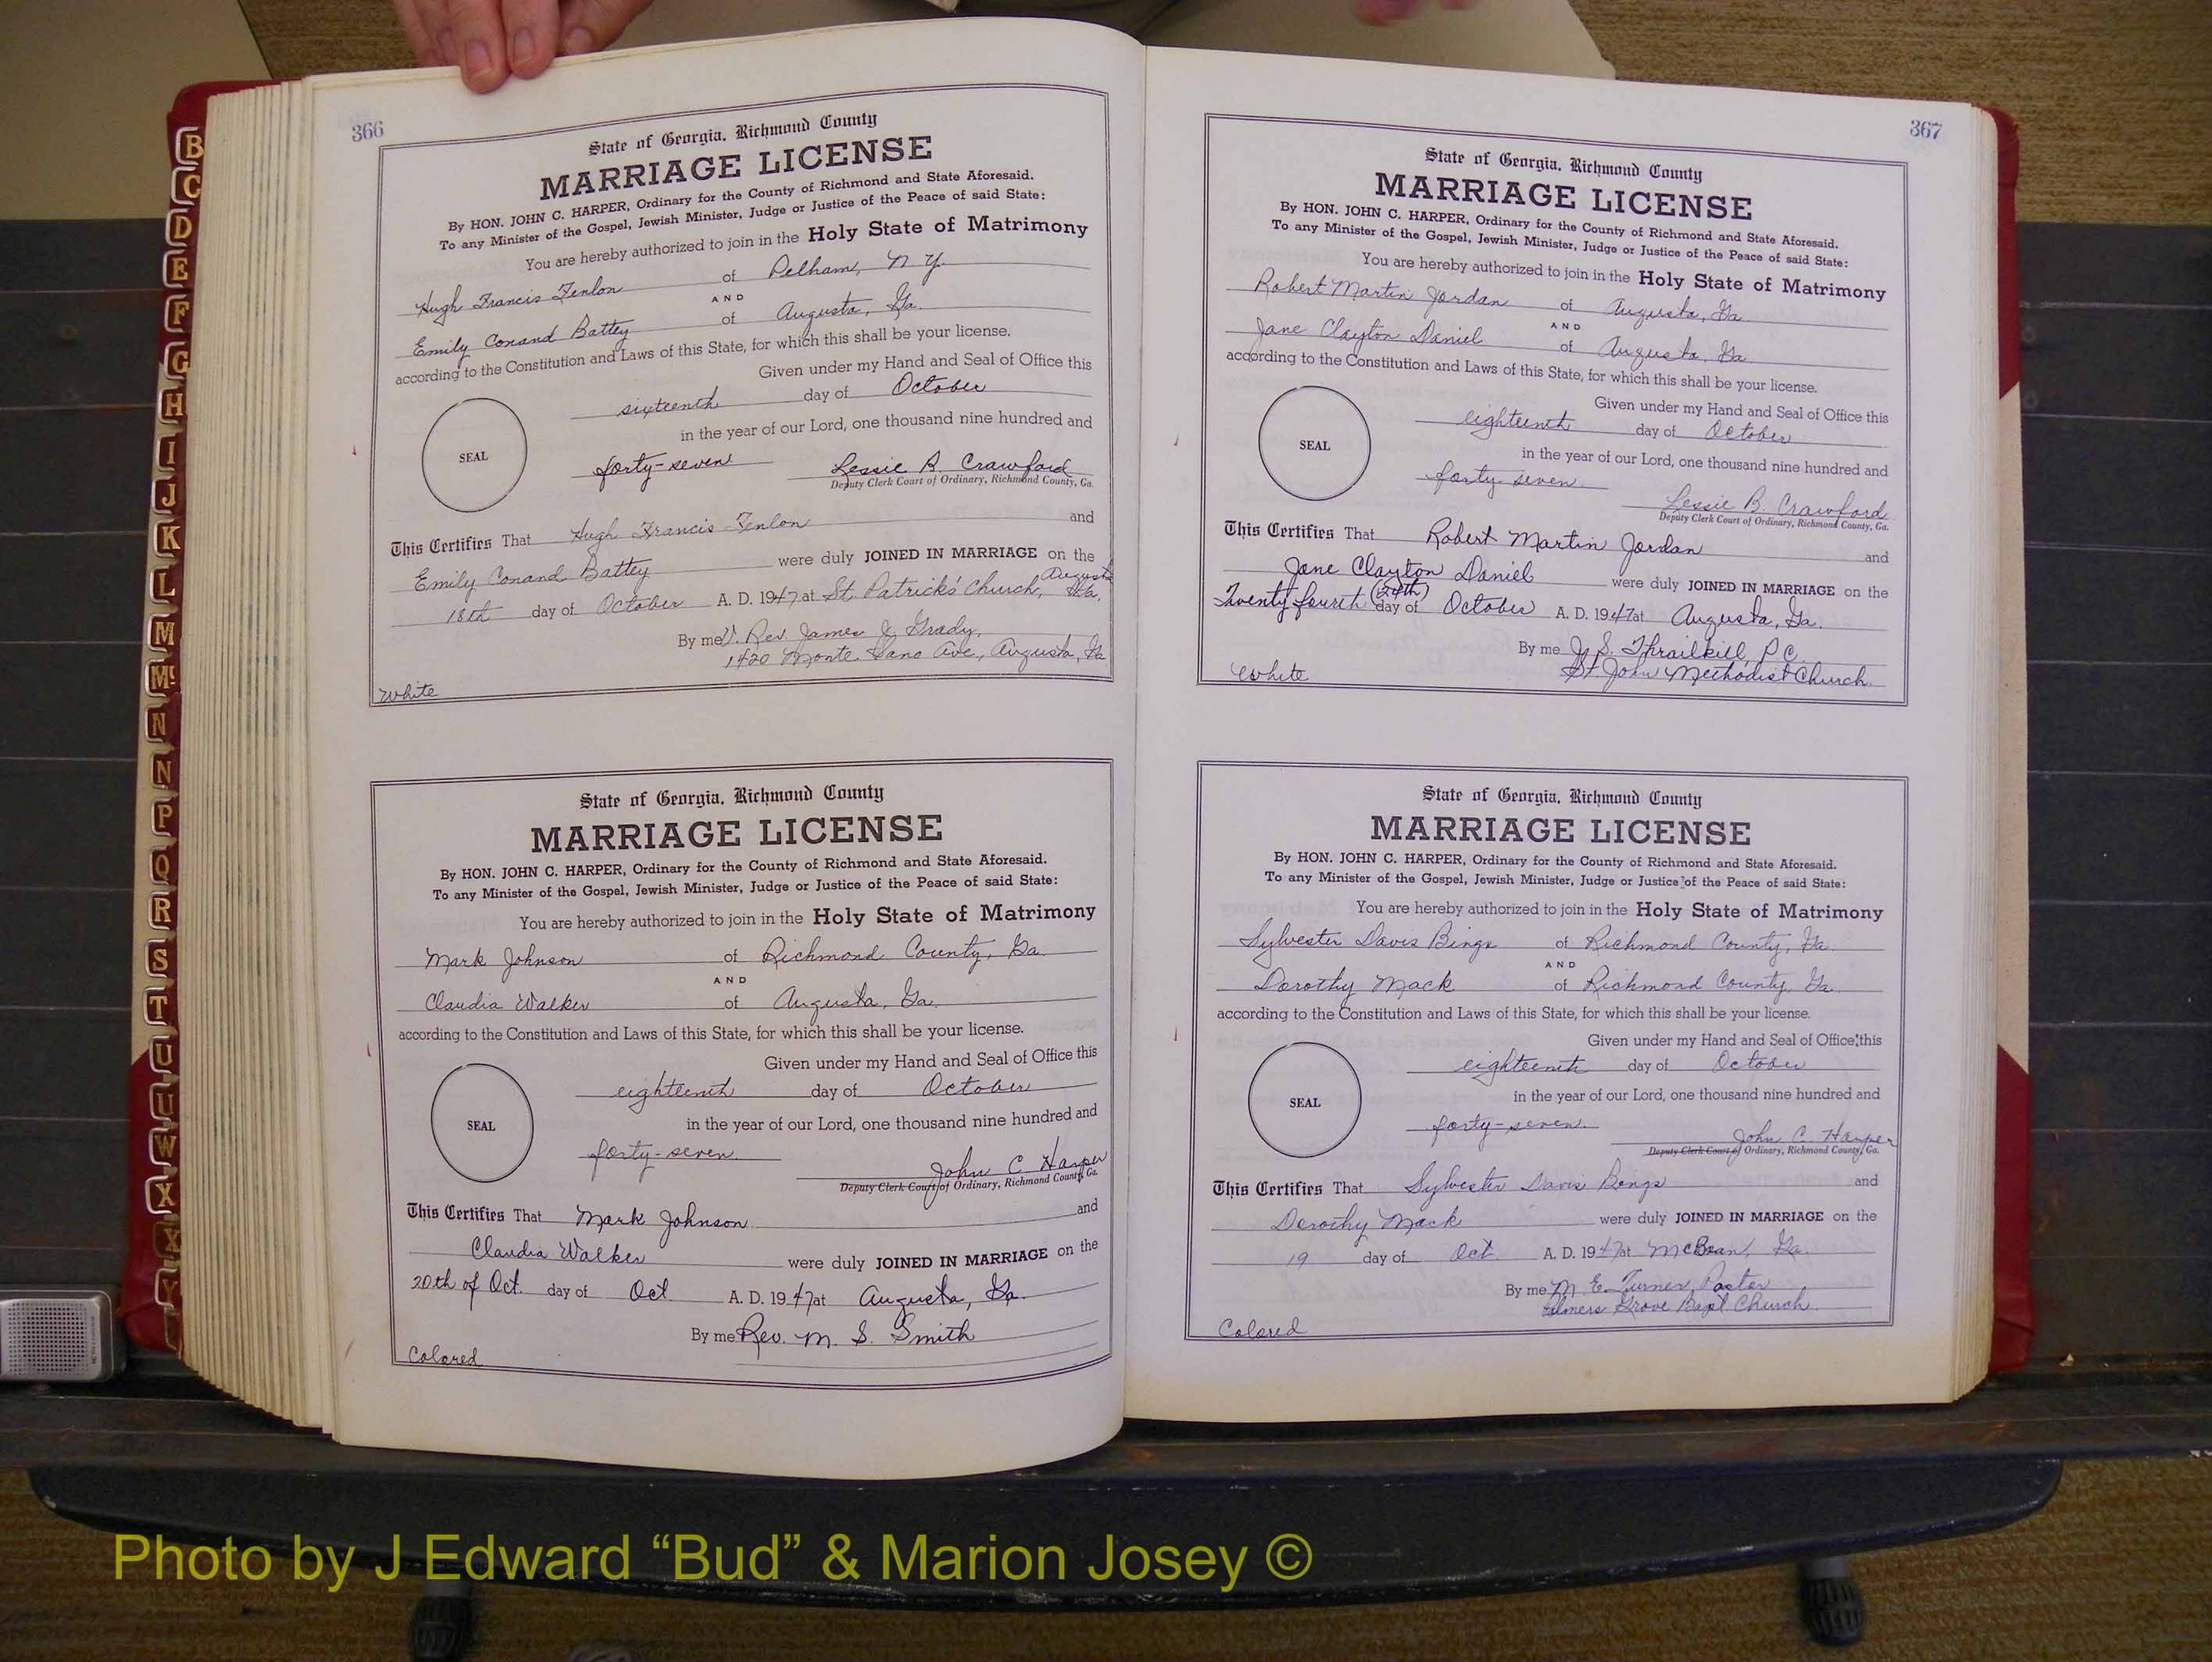 B
C
D
E
F
G
H
I
J
K
L
M
Mc
N
N
P
Q
R
S
T
U
U
W
X
X
Y
366
State of Georgia, Richmond County
MARRIAGE LICENSE
By HON. JOHN C. HARPER, Ordinary for the County of Richmond and State Aforesaid.
To any Minister of the Gospel, Jewish Minister, Judge or Justice of the Peace of said State:
You are hereby authorized to join in the Holy State of Matrimony
Hugh Francis Fenlon of Pelham, N. Y.
AND
Emily Conand Battey of Augusta, Ga.
according to the Constitution and Laws of this State, for which this shall be your license.
Given under my Hand and Seal of Office this
sixteenth day of October
in the year of our Lord, one thousand nine hundred and
SEAL
forty-seven Lessie B. Crawford
Deputy Clerk Court of Ordinary, Richmond County, Ga.
This Certifies That Hugh Francis Fenlon and
Emily Conand Battey were duly JOINED IN MARRIAGE on the
18th day of October A. D. 1947 at St. Patrick's Church, Augusta Ga.
By me V. Rev James J. Grady,
1420 Monte Sano Ave, Augusta, Ga
White
State of Georgia, Richmond County
MARRIAGE LICENSE
By HON. JOHN C. HARPER, Ordinary for the County of Richmond and State Aforesaid.
To any Minister of the Gospel, Jewish Minister, Judge or Justice of the Peace of said State:
You are hereby authorized to join in the Holy State of Matrimony
Mark Johnson of Richmond County, Ga.
AND
Claudia Walker of Augusta, Ga.
according to the Constitution and Laws of this State, for which this shall be your license.
Given under my Hand and Seal of Office this
eighteenth day of October
in the year of our Lord, one thousand nine hundred and
SEAL
forty-seven John C. Harper
Deputy Clerk Court of Ordinary, Richmond County, Ga.
This Certifies That Mark Johnson and
Claudia Walker were duly JOINED IN MARRIAGE on the
20th of Oct. day of Oct A. D. 1947 at Augusta, Ga.
By me Rev. M. S. Smith
Colored
367
State of Georgia, Richmond County
MARRIAGE LICENSE
By HON. JOHN C. HARPER, Ordinary for the County of Richmond and State Aforesaid.
To any Minister of the Gospel, Jewish Minister, Judge or Justice of the Peace of said State:
You are hereby authorized to join in the Holy State of Matrimony
Robert Martin Jordan of Augusta, Ga.
AND
Jane Clayton Daniel of Augusta, Ga
according to the Constitution and Laws of this State, for which this shall be your license.
Given under my Hand and Seal of Office this
eighteenth day of October
in the year of our Lord, one thousand nine hundred and
SEAL
forty seven
Lessie B. Crawford
Deputy Clerk Court of Ordinary, Richmond County, Ga.
This Certifies That Robert Martin Jordan and
Jane Clayton Daniel were duly JOINED IN MARRIAGE on the
Twenty fourth (24th) day of October A. D. 1947 at Augusta, Ga.
By me J. S. Thrailkill, P C
St John Methodist Church
White
State of Georgia, Richmond County
MARRIAGE LICENSE
By HON. JOHN C. HARPER, Ordinary for the County of Richmond and State Aforesaid.
To any Minister of the Gospel, Jewish Minister, Judge or Justice of the Peace of said State:
You are hereby authorized to join in the Holy State of Matrimony
Sylvester Davis Binge of Richmond County, Ga.
AND
Dorothy Mack of Richmond County, Ga.
according to the Constitution and Laws of this State, for which this shall be your license.
Given under my Hand and Seal of Office this
eighteenth day of October
in the year of our Lord, one thousand nine hundred and
SEAL
forty-seven John C. Harper
Deputy Clerk Court of Ordinary, Richmond County, Ga.
This Certifies That Sylvester Davis and
Dorothy Mack were duly JOINED IN MARRIAGE on the
19 day of Oct A. D. 1947 at McBean, Ga.
By me M. E. Turner, Pastor
Grove Bapt Church
Colored
Photo by J Edward “Bud” & Marion Josey ©